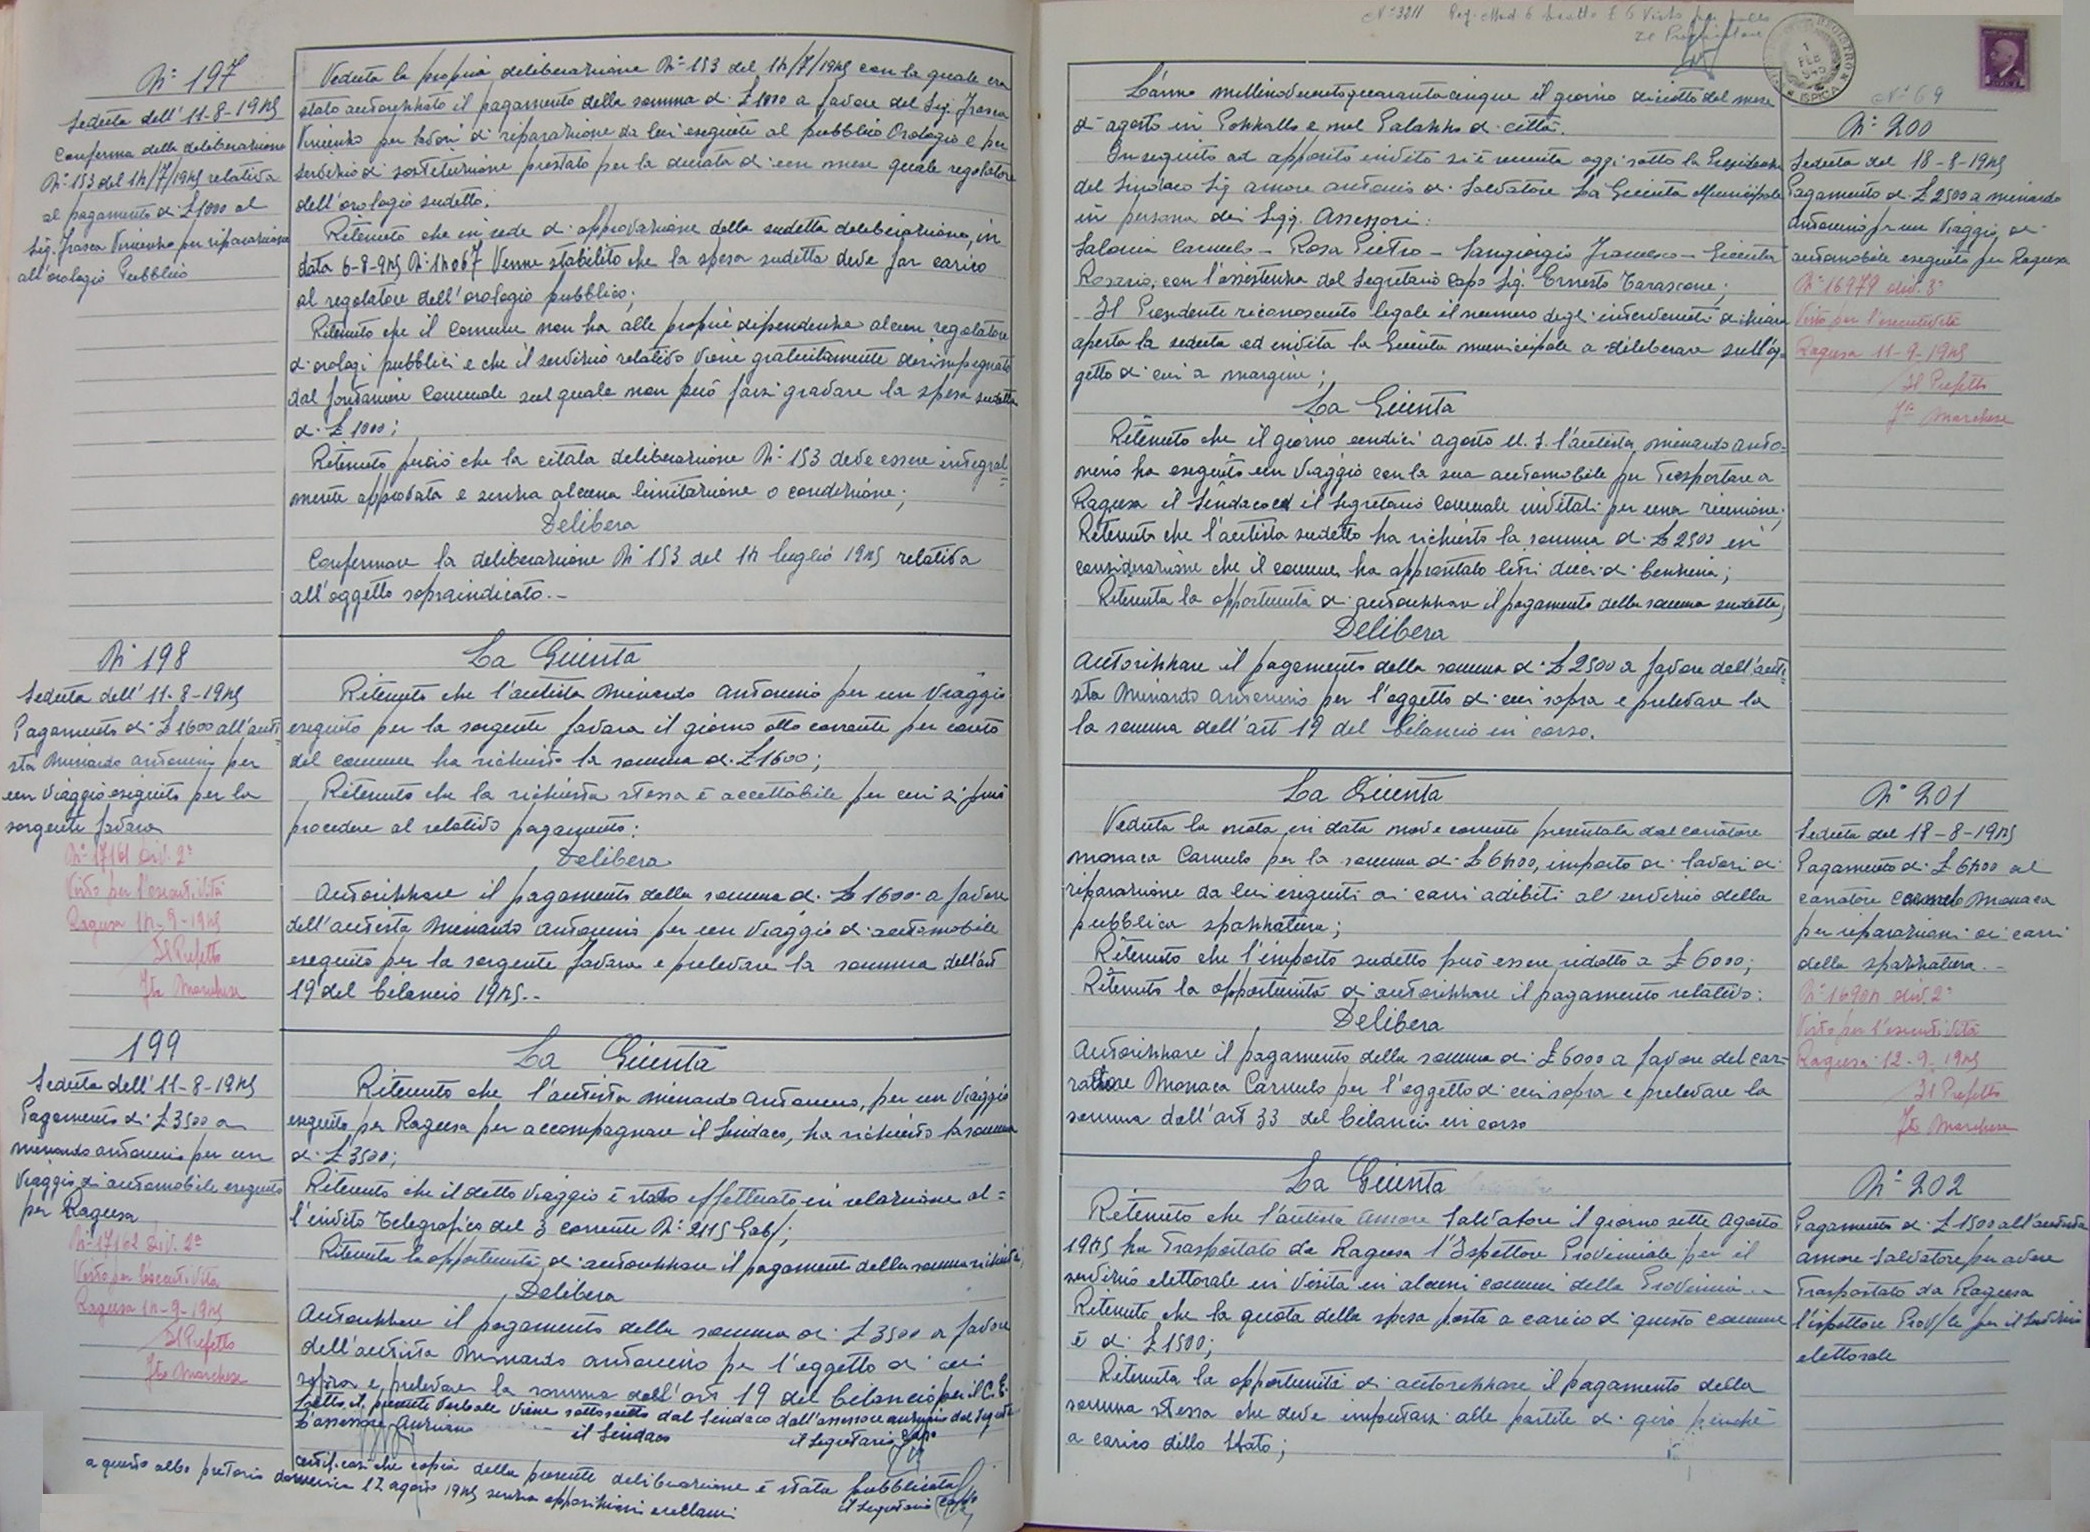 N° 197
Seduta dell' 11-8-1945
Conferma della deliberazione
N° 153 del 14/7/1945 relativa
al pagamento di £ 1000 al
Sig. Frasca Vincenzo per riparazione
all'orologio Pubblico
Veduta la propria deliberazione N° 153 del 14/7/1945 con la quale era
stato autorizzato il pagamento della somma di £ 1000 a favore del Sig. Frasca
Vincenzo per lavori di riparazione da lui eseguite al pubblico Orologio e per
servizio di sostituzione prestato per la durata di un mese quale regolatore
dell'orologio sudetto.
Ritenuto che in sede di approvazione della sudetta deliberazione, in
data 6-8-945 N° 14067 Venne stabilito che la spesa sudetta deve far carico
al regolatore dell'orologio pubblico;
Ritenuto che il Comune non ha alle proprie dipendenze alcun regolatore
di orologi pubblici e che il servizio relativo viene gratuitamente disimpegnato
dal fontaniere Comunale sul quale non può farsi gravare la spesa sudetta
di £ 1000;
Ritenuto perciò che la citata deliberazione N° 153 deve essere integral=
mente approvata e senza alcuna limitazione o condizione;
Delibera
Confermare la deliberazione N° 153 del 14 luglio 1945 relativa
all'oggetto sopraindicato.-
N° 198
Seduta dell' 11-8-1945
Pagamento di £ 1600 all'auti=
sta Minardo Antonino per
un Viaggio eseguito per la
sorgente favara
N° 17161 Div. 2ª
Visto per l'esecutività
Ragusa 14-9-1945
Il Prefetto
Fto Marchese
La Giunta
Ritenuto che l'autista Minardo Antonino per un Viaggio
eseguito per la sorgente favara il giorno otto corrente per conto
del comune ha richiesto la somma di £ 1600;
Ritenuto che la richiesta stessa è accettabile per cui si può
procedere al relativo pagamento:
Delibera
Autorizzare il pagamento della somma di £ 1600 a favore
dell'autista Minardo Antonino per un Viaggio di automobile
eseguito per la sorgente favara e prelevare la somma dell'art
19 del bilancio 1945.-
199
Seduta dell' 11-8-1945
Pagamento di £ 3500 a
Minardo Antonino per un
Viaggio di automobile eseguito
per Ragusa
N° 17162 Div. 2ª
Visto per l'esecutività
Ragusa 14-9-1945
Il Prefetto
Fto Marchese
La Giunta
Ritenuto che l'autista Minardo Antonino, per un Viaggio
eseguito per Ragusa per accompagnare il Sindaco, ha richiesto la somma
di £ 3500;
Ritenuto che il detto Viaggio è stato effettuato in relazione al=
l'invito Telegrafico del 3 corrente N° 2115 Gab/;
Ritenuta la opportunità di autorizzare il pagamento della somma richiesta;
Delibera
Autorizzare il pagamento della somma di £ 3500 a favore
dell'autista Minardo Antonino per l'oggetto di cui
sopra e prelevare la somma dell'art 19 del bilancio per il C. E.
Letto, il presente Verbale viene sottoscritto dal Sindaco dall'assessore anziano dal Segretario
L'assessore Anziano il Sindaco il Segretario Capo
certificasi che copia della presente deliberazione è stata pubblicata
a questo albo pretorio domenica 12 agosto 1945 senza opposizioni o reclami
il Segretario Capo
N° 3211 Visto
Il
REGISTRO
1 FEB
ISPICA
N° 69
L'anno millenovecentoquarantacinque il giorno diciotto del mese
di agosto in Pozzallo e nel Palazzo di città.
In seguito ad apposito invito si è riunita oggi sotto la Presidenza
del Sindaco Sig. Amore Antonio di Salvatore La Giunta Municipale
in persona dei Sigg. Assessori:
Salonia Carmelo - Rosa Pietro - Sangiorgio Francesco - Giunta
Rosario, con l'assistenza del Segretario Capo Sig. Ernesto Tarascone;
- Il Presidente riconosciuto legale il numero degl'intervenuti dichiara
aperta la seduta ed invita la Giunta municipale a deliberare sull'og-
getto di cui a margine;
N° 200
Seduta del 18-8-1945
Pagamento di £ 2500 a Minardo
Antonino per un Viaggio di
automobile eseguito per Ragusa
N° 16979 div. 3ª
Visto per l'esecutività
Ragusa 11-9-1945
Il Prefetto
Fto Marchese
La Giunta
Ritenuto che il giorno undici agosto u. s. l'autista Minardo Anto=
nino ha eseguito un Viaggio con la sua automobile per Trasportare a
Ragusa il Sindaco ed il Segretario Comunale invitati per una riunione;
Ritenuto che l'autista sudetto ha richiesto la somma di £ 2500 in
considerazione che il comune ha apprestato litri dieci di benzina;
Ritenuta la opportunità di autorizzare il pagamento della somma sudetta;
Delibera
Autorizzare il pagamento della somma di £ 2500 a favore dell'auti=
sta Minardo Antonino per l'oggetto di cui sopra e prelevare la
la somma dell'art 19 del bilancio in corso.
N° 201
Seduta del 18-8-1945
Pagamento di £ 6400 al
carratore Carmelo Monaca
per riparazioni ai carri
della spazzatura.-
N° 16904 div. 2ª
Visto per l'esecutività
Ragusa 12-9-1945
Il Prefetto
Fto Marchese
La Giunta
Veduta la nota in data nove corrente presentata dal carratore
Monaca Carmelo per la somma di £ 6400, importo di lavori di
riparazione da lui eseguiti ai carri adibiti al servizio della
pubblica spazzatura;
Ritenuto che l'importo sudetto può essere ridotto a £ 6000;
Ritenuta la opportunità di autorizzare il pagamento relativo:
Delibera
Autorizzare il pagamento della somma di £ 6000 a favore del car-
ratore Monaca Carmelo per l'oggetto di cui sopra e prelevare la
somma dall'art 33 del bilancio in corso
N° 202
Pagamento di £ 1500 all'autista
Amore Salvatore per avere
Trasportato da Ragusa
l'ispettore Prov/le per il servizio
elettorale
La Giunta
Ritenuto che l'autista Amore Salvatore il giorno sette Agosto
1945 ha Trasportato da Ragusa l'Ispettore Provinciale per il
servizio elettorale in Visita in alcuni comuni della Provincia.-
Ritenuto che la quota della spesa posta a carico di questo comune
è di £ 1500;
Ritenuta la opportunità di autorizzare il pagamento della
somma stessa che deve imputarsi alle partite di giro perchè
a carico dello Stato;